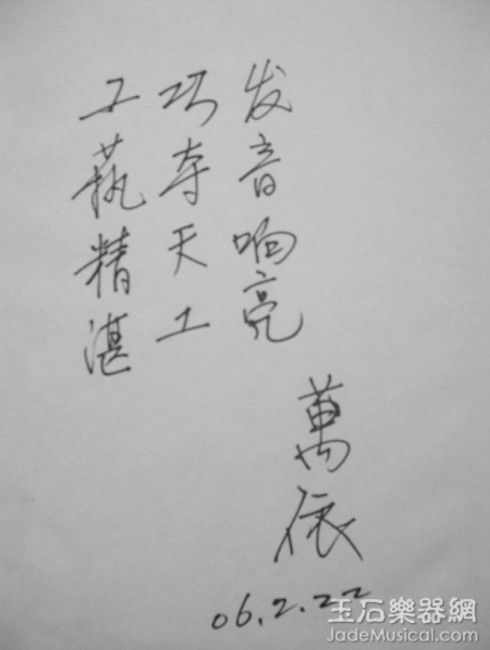 工蓺精湛
巧夺天工
发音响亮
萬依
06.2.22
玉石樂器網
JadeMusical.com